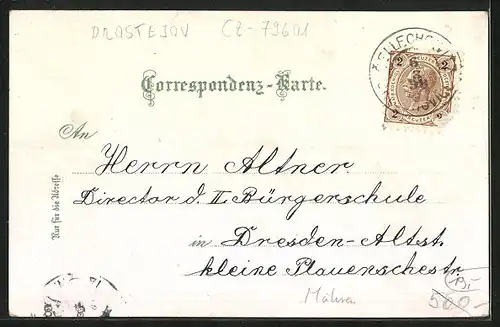 DROSTEJOV CZ-79601
Correspondenz-Karte.
2 KREUZER 2
2 2
An
Herrn Altner
Director d. II Bürgerschule
in Dresden-Altst.
kleine Plauenschestr.
Nur für die Adresse
Mähren
500